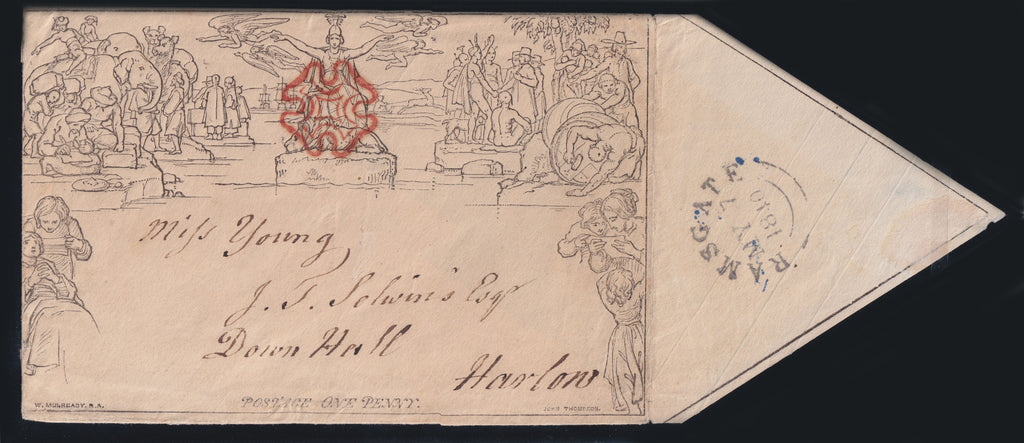 Miss Young
J. T. Selwin's Esqr
Down Hall
Harlow
W. MULREADY, R.A.
POSTAGE ONE PENNY.
JOHN THOMPSON.
RAMSGATE
MY
1840